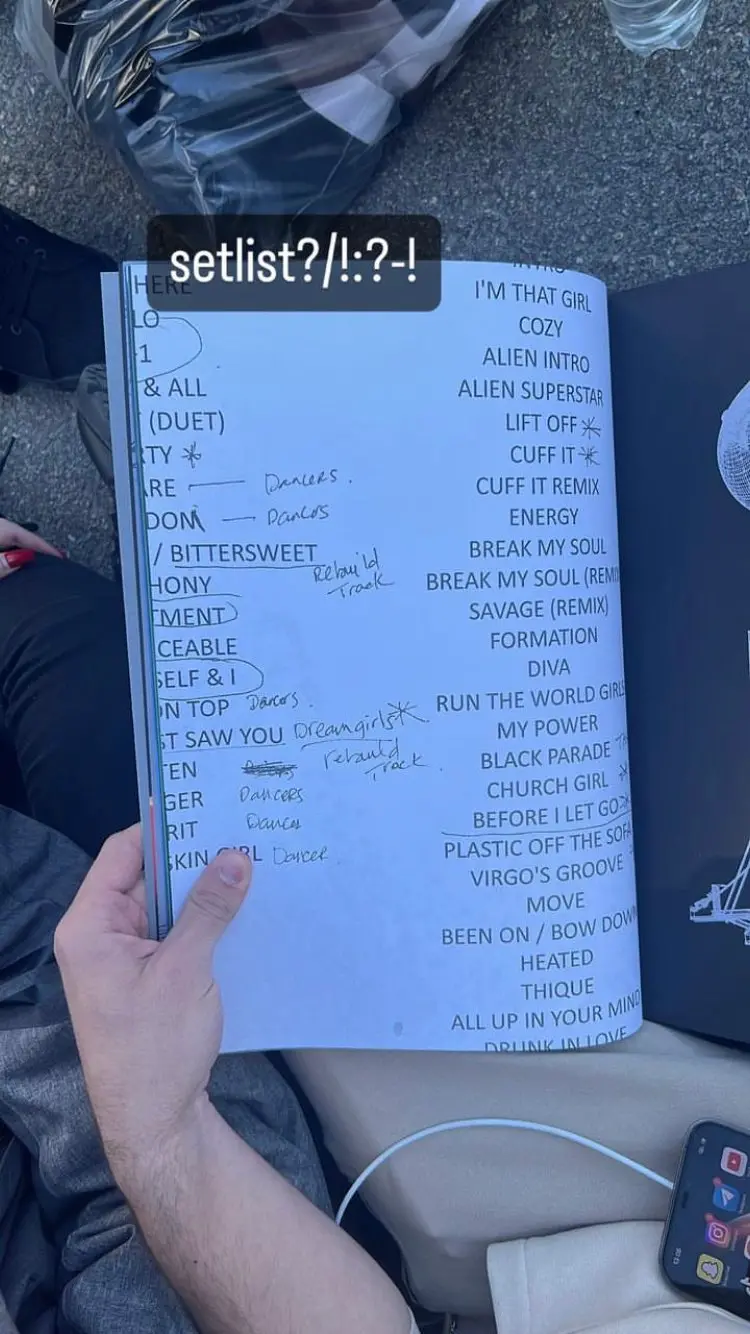 setlist?/!:?-!
HERE
LO
-1
& ALL
(DUET)
RTY *
ARE — Dancers.
DOM — Dancers
/ BITTERSWEET
HONY Rebuild Track
TMENT
CEABLE
SELF & I
ON TOP Dancers.
ST SAW YOU Dreamgirls *
TEN rebuild Track.
GER Dancers
RIT Dancer
SKIN GIRL Dancer
INTRO
I'M THAT GIRL
COZY
ALIEN INTRO
ALIEN SUPERSTAR
LIFT OFF *
CUFF IT *
CUFF IT REMIX
ENERGY
BREAK MY SOUL
BREAK MY SOUL (REM
SAVAGE (REMIX)
FORMATION
DIVA
RUN THE WORLD GIRLS
MY POWER
BLACK PARADE
CHURCH GIRL *
BEFORE I LET GO *
PLASTIC OFF THE SOFA
VIRGO'S GROOVE
MOVE
BEEN ON / BOW DOWN
HEATED
THIQUE
ALL UP IN YOUR MIND
DRUNK IN LOVE